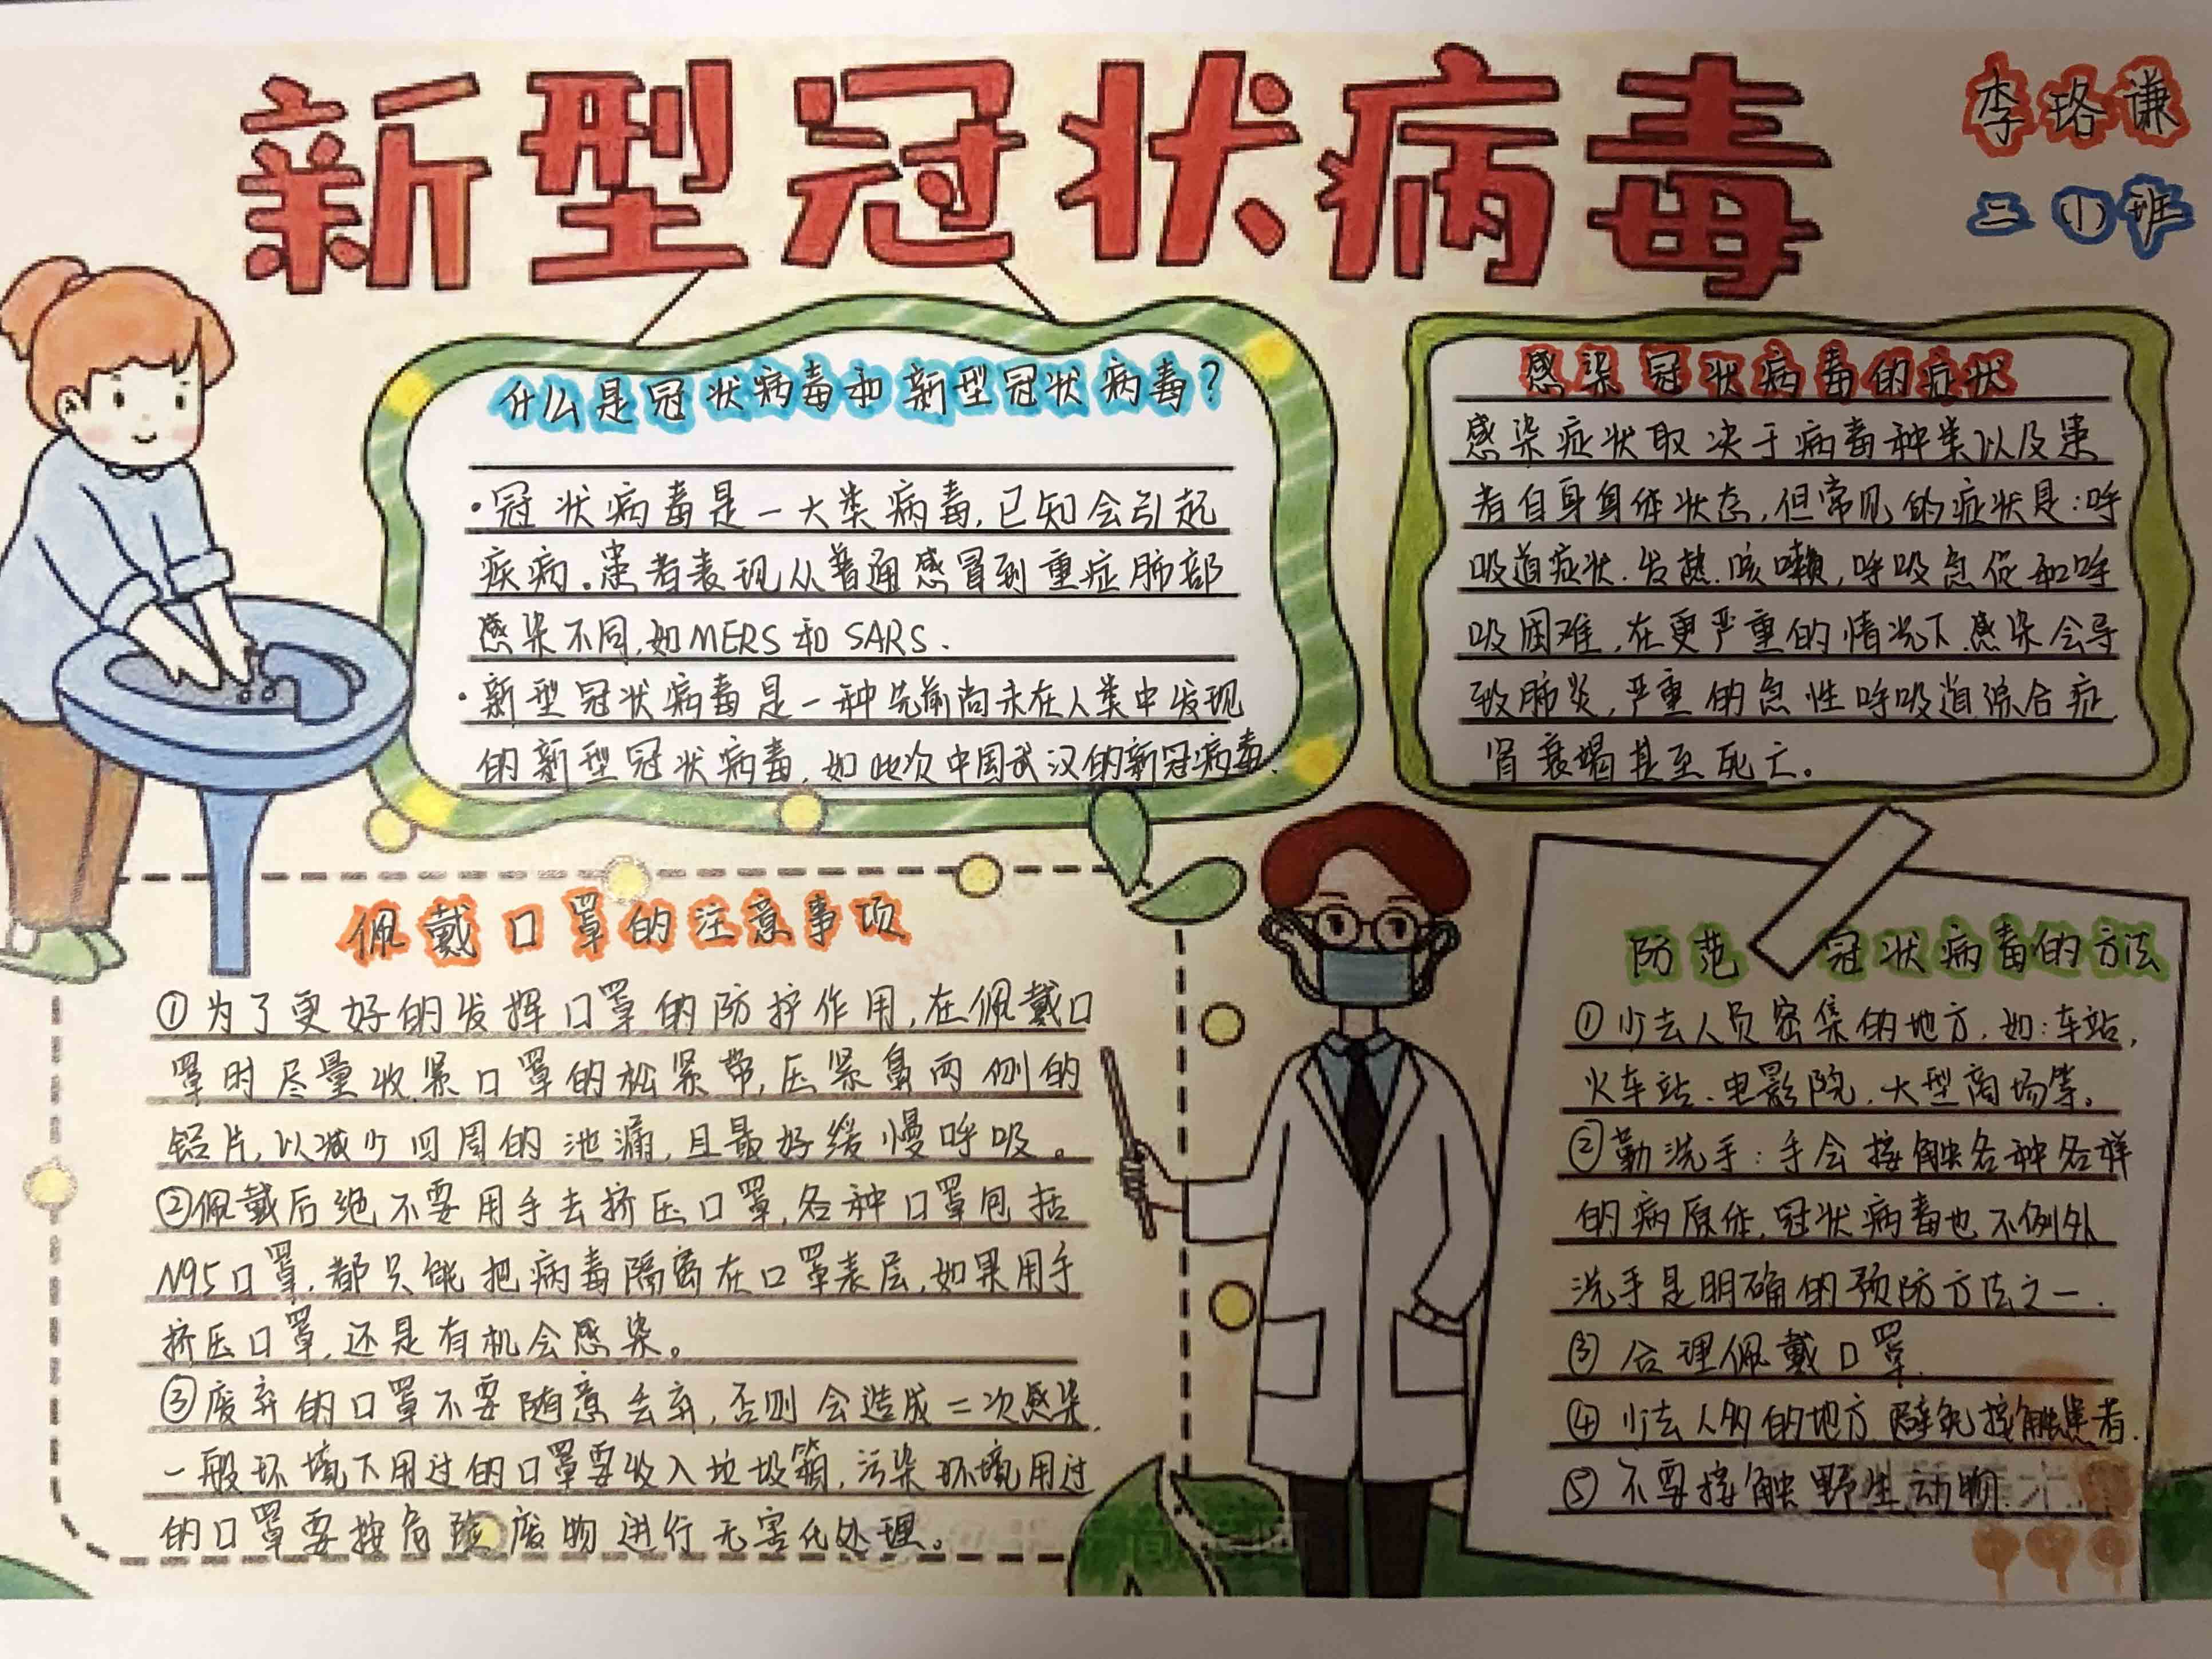 新型冠状病毒
李珞谦
二①班
什么是冠状病毒和新型冠状病毒？
·冠状病毒是一大类病毒,已知会引起
疾病。患者表现从普通感冒到重症肺部
感染不同,如MERS和SARS.
·新型冠状病毒是一种先前尚未在人类中发现
的新型冠状病毒,如此次中国武汉的新冠病毒.
感染冠状病毒的症状
感染症状取决于病毒种类以及患
者自身身体状态,但常见的症状是:呼
吸道症状.发热.咳嗽,呼吸急促和呼
吸困难,在更严重的情况下.感染会导
致肺炎,严重的急性呼吸道综合症,
肾衰竭甚至死亡。
佩戴口罩的注意事项
①为了更好的发挥口罩的防护作用,在佩戴口
罩时尽量收紧口罩的松紧带,压紧鼻两侧的
铝片,以减少四周的泄漏,且最好缓慢呼吸。
②佩戴后绝不要用手去挤压口罩,各种口罩包括
N95口罩,都只能把病毒隔离在口罩表层,如果用手
挤压口罩,还是有机会感染。
③废弃的口罩不要随意丢弃,否则会造成二次感染,
一般环境下用过的口罩要收入垃圾箱,污染环境用过
的口罩要按危险废物进行无害化处理。
防范冠状病毒的方法
①少去人员密集的地方,如:车站,
火车站、电影院,大型商场等。
②勤洗手:手会接触各种各样
的病原体,冠状病毒也不例外
洗手是明确的预防方法之一.
③合理佩戴口罩.
④少去人多的地方避免接触患者.
⑤不要接触野生动物.